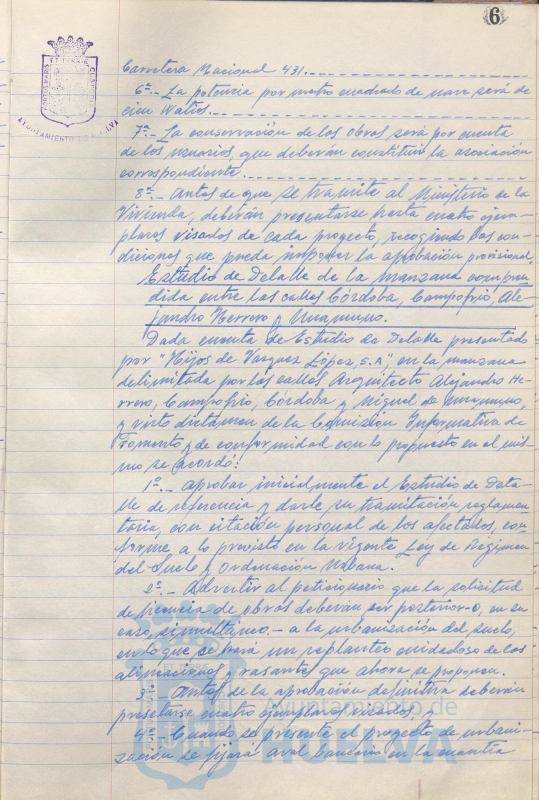 6
PORTUS MARIS ET TERRAE CUSTODIA
AYUNTAMIENTO HUELVA
Carretera Nacional 431.
6º.- La potencia por metro cuadrado de nave será de
cien Watios.
7º.- La conservación de las obras será por cuenta
de los usuarios, que deberán constituir la asociación
correspondiente.
8º.- Antes de que se tramite al Ministerio de la
Vivienda, deberán presentarse hasta cuatro ejem-
plares visados de cada proyecto, recogiendo las con-
diciones que pueda imponer la aprobación provisional.
Estudio de Detalle de la manzana compren-
dida entre las calles Córdoba, Campofrío, Ale-
jandro Herrero y Unamuno.
Dada cuenta de Estudio de Detalle presentado
por "Hijos de Vázquez López, S.A", en la manzana
delimitada por las calles Arquitecto Alejandro He-
rrero, Campofrío, Córdoba y Miguel de Unamuno,
y visto dictamen de la Comisión Informativa de
Fomento y de conformidad con lo propuesto en el mis-
mo se acordó:
1º.- Aprobar inicialmente el Estudio de Deta-
lle de referencia y darle su tramitación reglamen-
taria, con citación personal de los afectados, con-
forme a lo previsto en la vigente Ley de Régimen
del Suelo y Ordenación Urbana.
2º.- Advertir al peticionario que la solicitud
de licencia de obras deberán ser posterior-o, en su
caso, simultáneo.- a la urbanización del suelo,
en lo que se hará un replanteo cuidadoso de las
alineaciones y rasantes que ahora se proponen.
3º.- Antes de la aprobación definitiva deberán
presetarse cuatro ejemplares visados, y
4º.- Cuando se presente el proyecto de urbani-
zación se fijará aval bancario en la cuantía
Ayuntamiento de
HUELVA